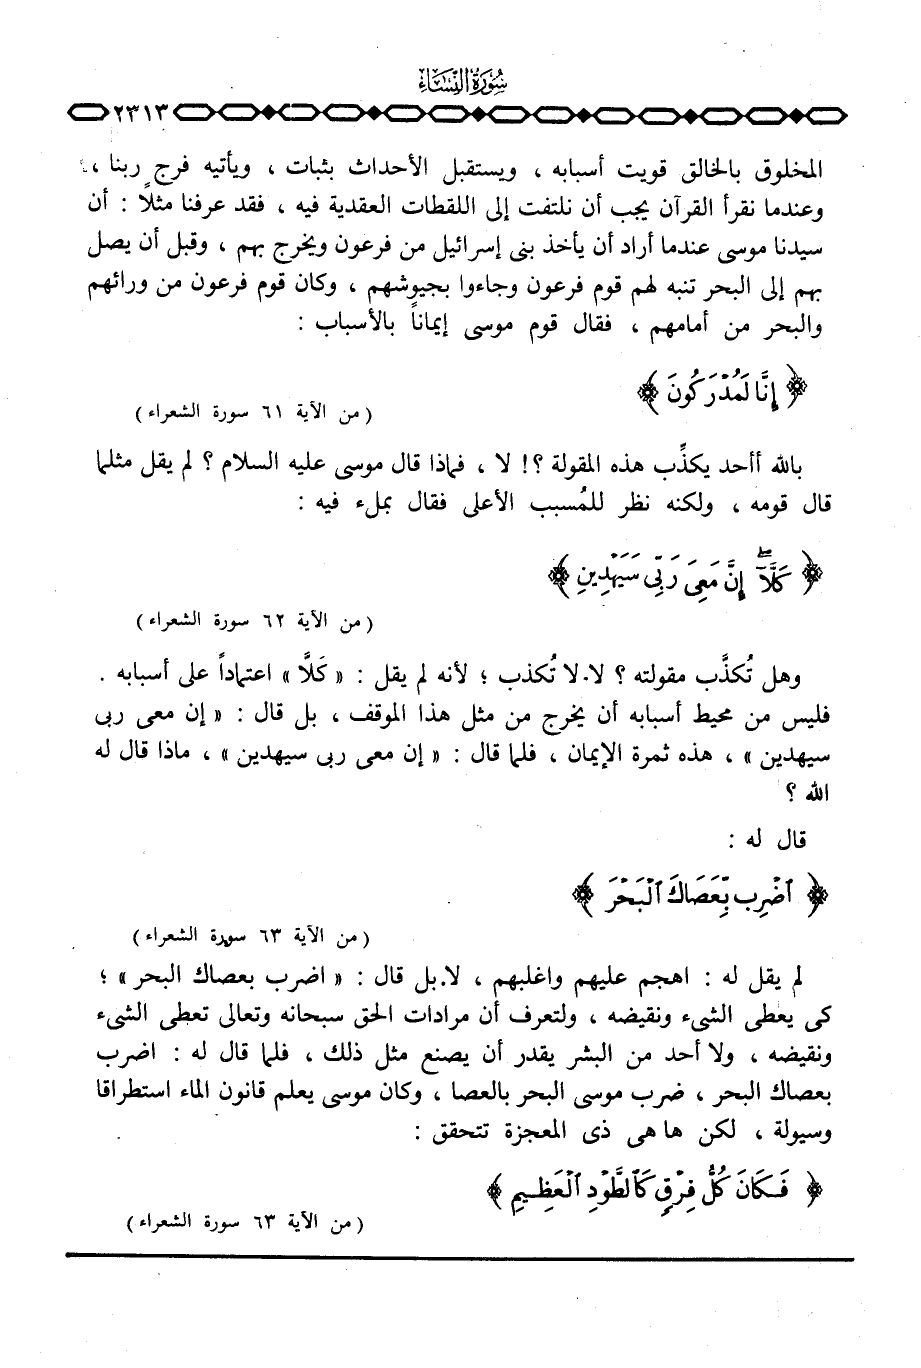 سُورَةُ النِّسَاءِ
٢٣١٣
المخلوق بالخالق قويت أسبابه ، ويستقبل الأحداث بثبات ، ويأتيه فرج ربنا ،
وعندما نقرأ القرآن يجب أن نلتفت إلى اللقطات العقدية فيه ، فقد عرفنا مثلاً : أن
سيدنا موسى عندما أراد أن يأخذ بنى إسرائيل من فرعون ويخرج بهم ، وقبل أن يصل
بهم إلى البحر تنبه لهم قوم فرعون وجاءوا بجيوشهم ، وكان قوم فرعون من ورائهم
والبحر من أمامهم ، فقال قوم موسى إيماناً بالأسباب :
﴿ إِنَّا لَمُدْرَكُونَ ﴾
( من الآية ٦١ سورة الشعراء )
بالله أأحد يكذِّب هذه المقولة ؟! لا ، فماذا قال موسى عليه السلام ؟ لم يقل مثلما
قال قومه ، ولكنه نظر للمُسبب الأعلى فقال بملء فيه :
﴿ كَلَّآ ۖ إِنَّ مَعِىَ رَبِّى سَيَهْدِينِ ﴾
( من الآية ٦٢ سورة الشعراء )
وهل تُكذَّب مقولته ؟ لا. لا تُكذب ؛ لأنه لم يقل : « كَلَّا » اعتماداً على أسبابه .
فليس من محيط أسبابه أن يخرج من مثل هذا الموقف ، بل قال : « إن معى ربى
سيهدين » ، هذه ثمرة الإيمان ، فلما قال : « إن معى ربى سيهدين » ، ماذا قال له
الله ؟
قال له :
﴿ ٱضْرِب بِّعَصَاكَ ٱلْبَحْرَ ﴾
( من الآية ٦٣ سورة الشعراء )
لم يقل له : اهجم عليهم واغلبهم ، لا. بل قال : « اضرب بعصاك البحر » ؛
كى يعطى الشىء ونقيضه ، ولتعرف أن مرادات الحق سبحانه وتعالى تعطى الشىء
ونقيضه ، ولا أحد من البشر يقدر أن يصنع مثل ذلك ، فلما قال له : اضرب
بعصاك البحر ، ضرب موسى البحر بالعصا ، وكان موسى يعلم قانون الماء استطراقا
وسيولة ، لكن ها هى ذى المعجزة تتحقق :
﴿ فَكَانَ كُلُّ فِرْقٍ كَٱلطَّوْدِ ٱلْعَظِيمِ ﴾
( من الآية ٦٣ سورة الشعراء )